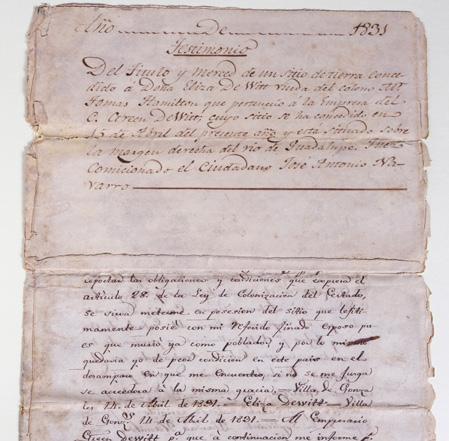 Año de 1831
Testimonio
Del Titulo y merced de un sitio de tierra conce
dido a Doña Eliza DeWitt viuda del colono Mr.
Tomas Hamilton que pertenecio a la Empresa del
C. Green DeWitt, cuyo sitio se ha concedido en
15 de Abril del presente año y esta situado sobre
la margen derecha del rio de Guadalupe. Juez
Comicionado el Ciudadano José Antonio Na-
varro.
las obligaciones y condiciones que espresa el
articulo 28. de la Ley de Colonizacion del Estado,
se sirva meterme en posesion del sitio que lejiti
mamente poseió con mi referido finado esposo pu
es que murió ya como poblador, y por lo mismo
quedaria yo de peor condicion en este pais en el
desamparo en que me encuentro, si no se me
accediera a la misma gracia. Villa de Gonza
les 14 de Abril de 1831. Eliza DeWitt Villa
de Gonzs. 14 de Abril de 1831. Al Empresario
Green DeWitt pa. que a continuacion me informe